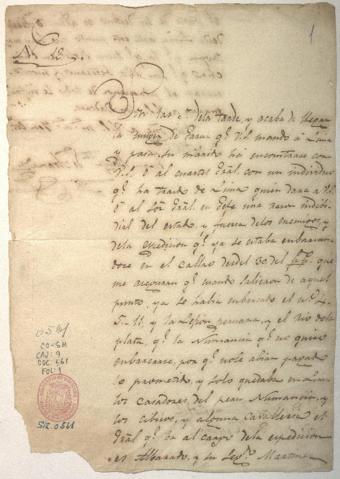 1
Son las 2 de la tarde, y acaba de llegar
de q.e el mando a Lima
y para su mando he encontrarse con
al cuartel Gral. con un individuo
q.e ha trahido de Lima quien dara a V.
al Sor Gral. en Gefe una razon indibi-
dual del estado, y fuerza delos enemigos, y
dela expedicion q.e ya se estaba embarcan-
dose en el callao desde el 30 del que
me aseguran q.e quando salieron de aquel
punto, ya se habia embarcado el N.o 2,
5, 11, y la Legion peruana, y el rio dela
plata, q.e la Numancia q.e no quiso
embarcarse, por q.e no le abian pagado
lo prometido, y solo quedaban en Lima
los casadores, del peru Numancia, y
los cibicos, y alguna Cavalleria el
Gral. q.e ba al cargo dela expedicion
es Albarado, y su Seg.do Martines
0541
CO-SM
CAJ: 9
DOC: 561
FOL: 1
SR. 0541